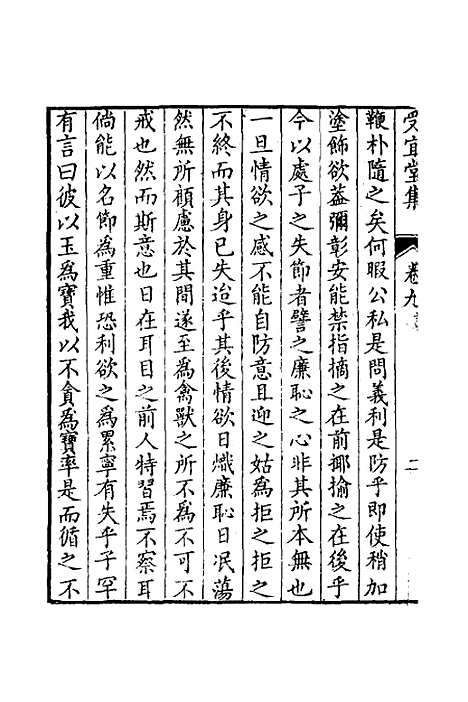 受宜堂集 卷九 二
鞭朴隨之矣何暇公私是問義利是防乎即使稍加
塗飾欲葢彌彰安能禁指摘之在前揶揄之在後乎
今以處子之失節者譬之廉恥之心非其所本無也
一旦情欲之感不能自防意且迎之姑為拒之拒之
不終而其身已失迨乎其後情欲日熾廉恥日泯蕩
然無所顧慮於其間遂至為禽獸之所不為不可不
戒也然而斯意也日在耳目之前人特習焉不察耳
倘能以名節為重惟恐利欲之為累寧有失乎子罕
有言曰彼以玉為寶我以不貪為寶率是而循之不